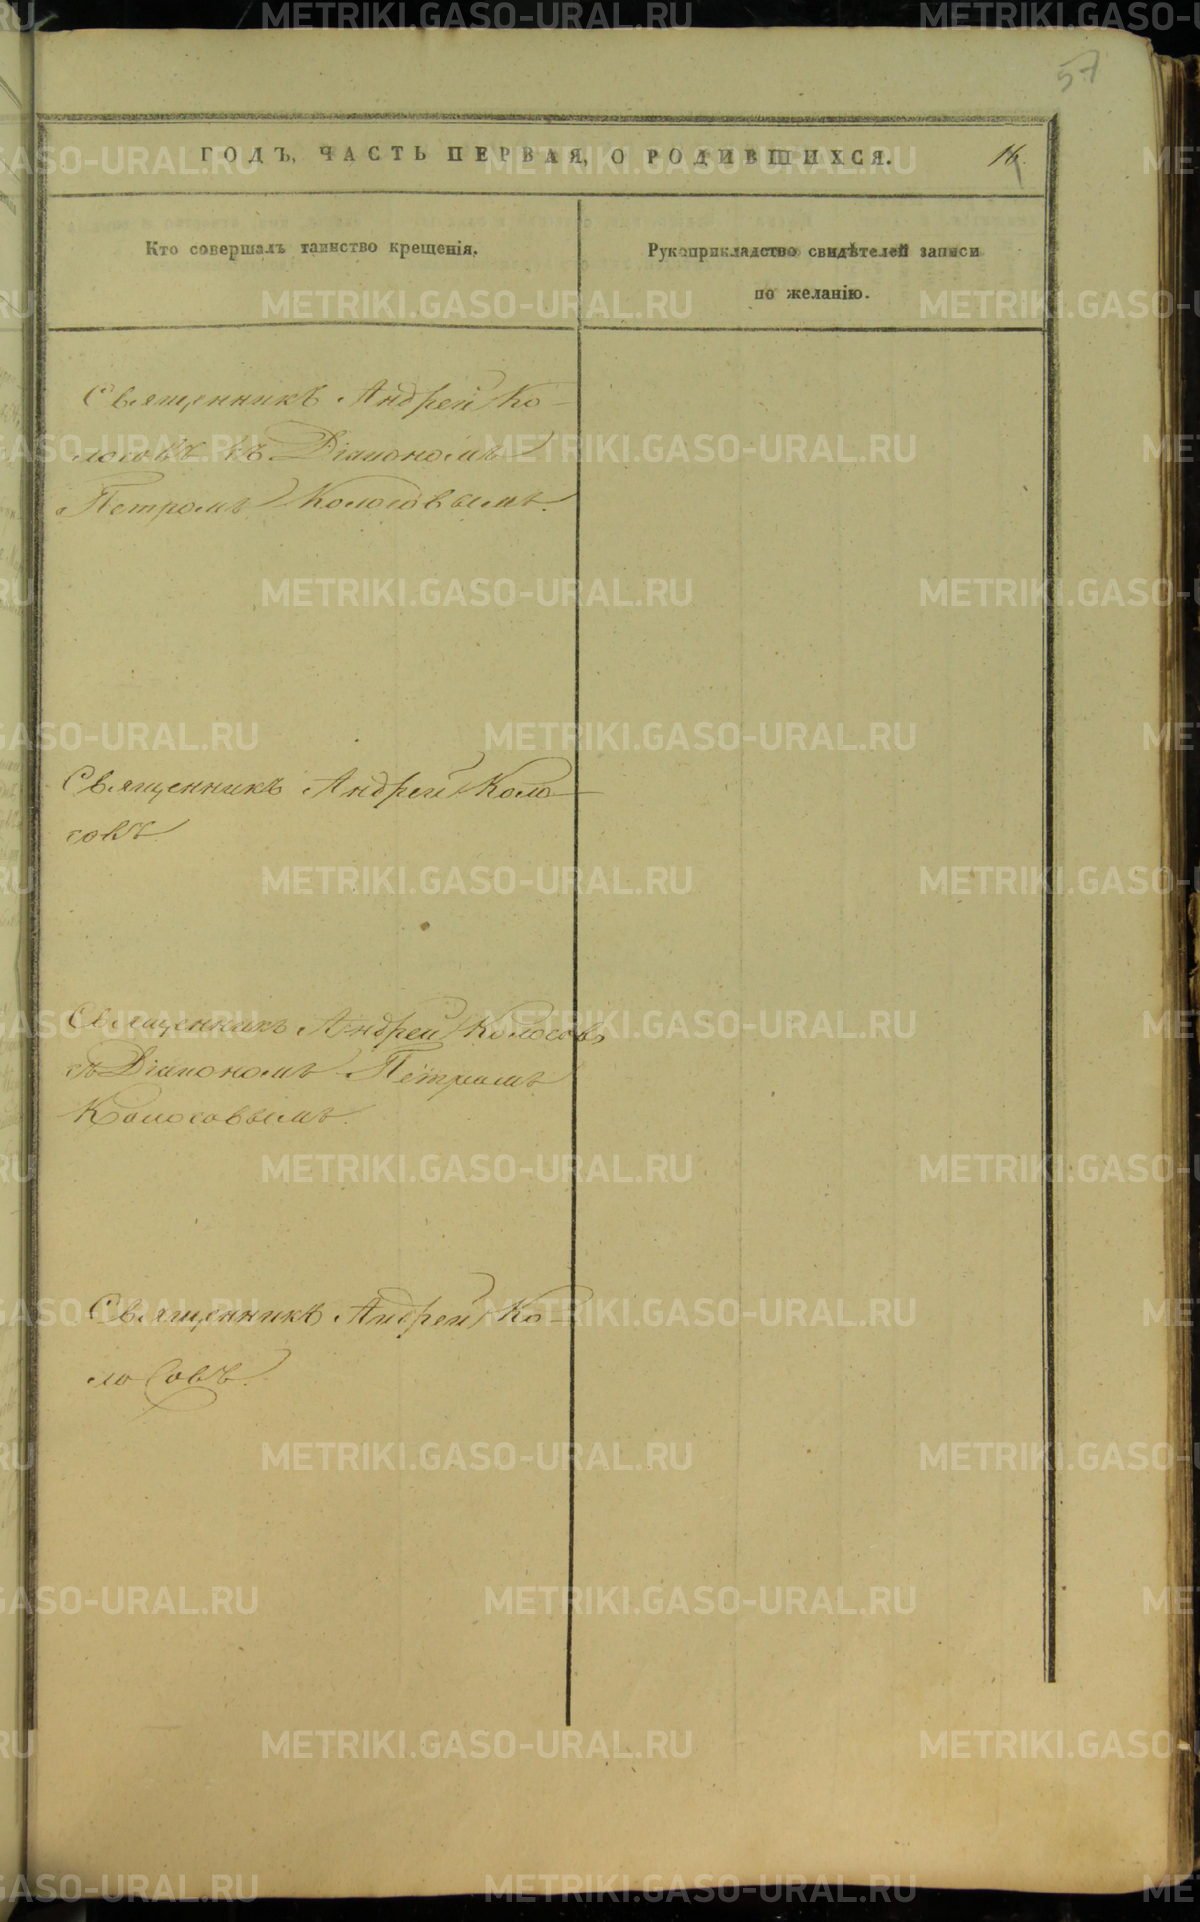 57
ГОДЪ, ЧАСТЬ ПЕРВАЯ, О РОДИВШИХСЯ.
16.
Кто совершалъ таинство крещенія.
Рукоприкладство свидѣтелей записи
по желанію.
Священникъ Андрей Ко-
лосовъ съ Діакономъ
Петромъ Колосовымъ.
Священникъ Андрей Коло-
совъ
Священникъ Андрей Колосовъ
съ Діакономъ Петромъ
Колосовымъ.
Священникъ Андрей Ко-
лосовъ.
METRIKI.GASO-URAL.RU